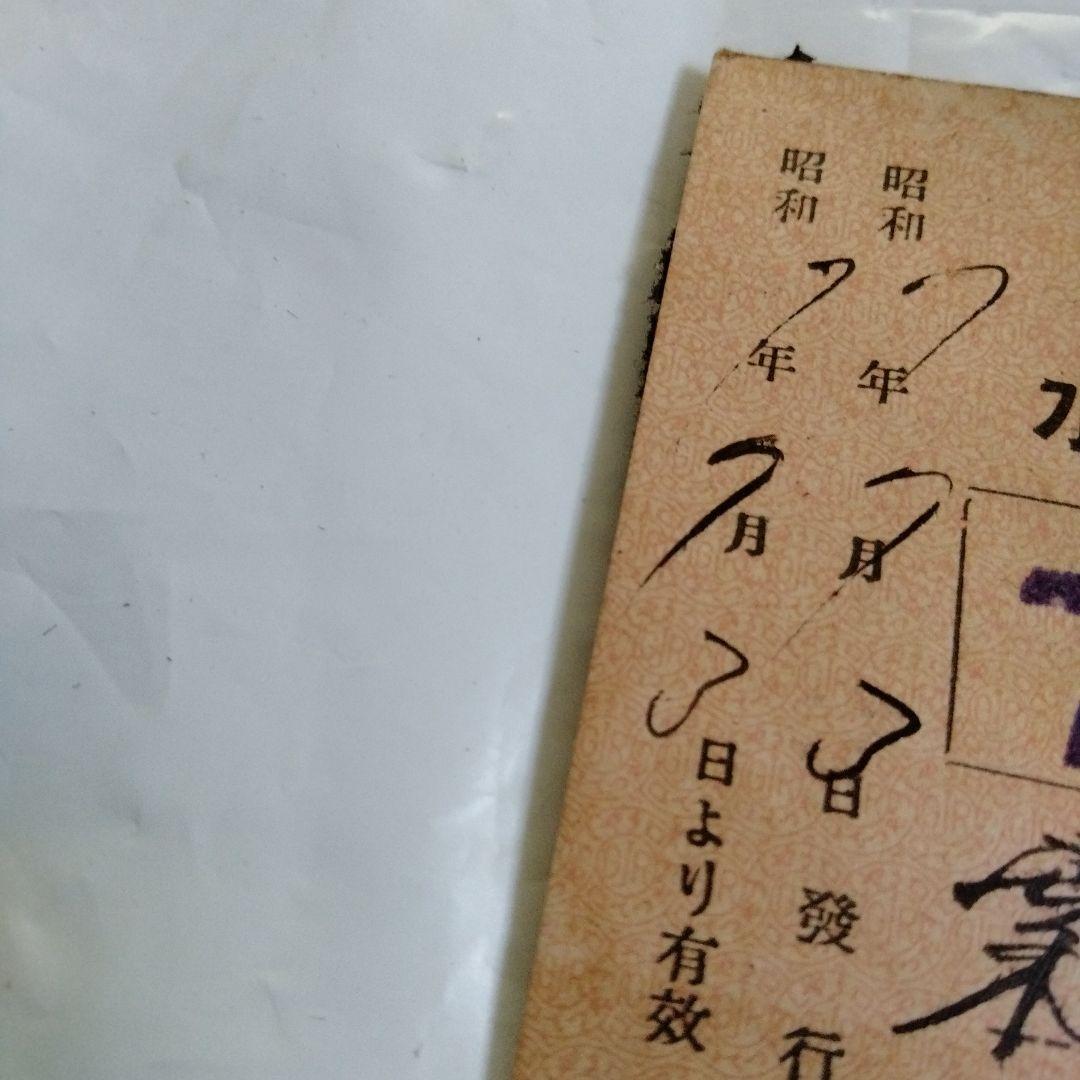 昭和7年7月3日發行
昭和7年7月3日より有効